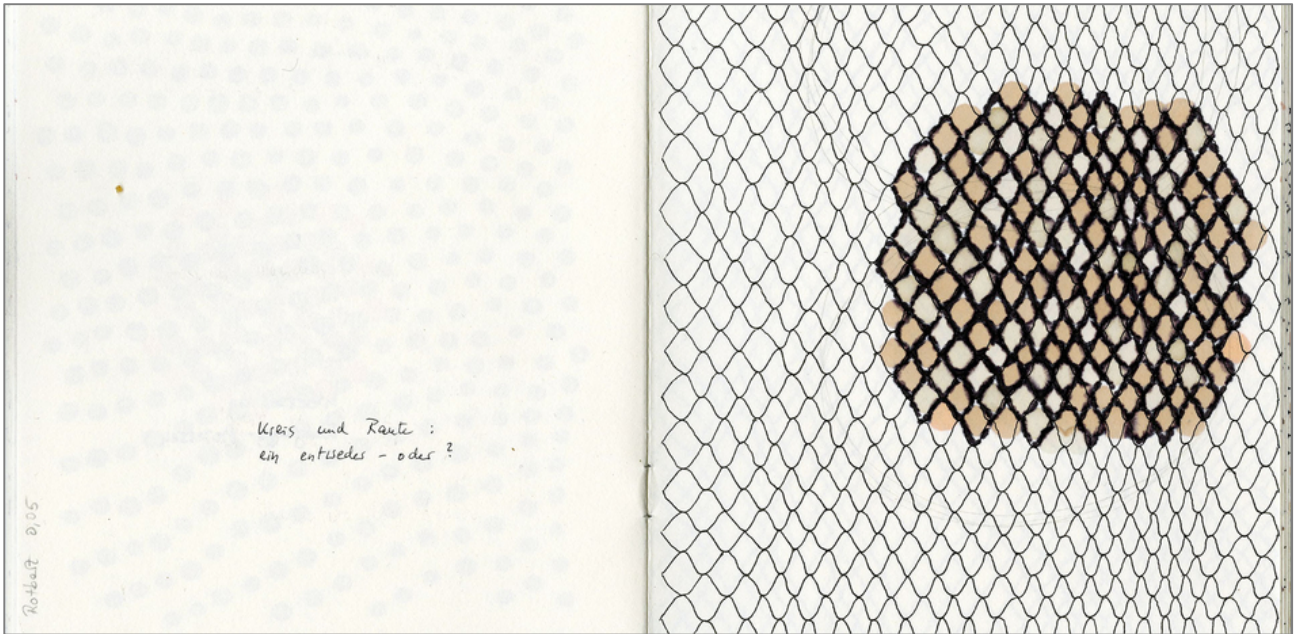 Kreis und Raute :
ein entweder - oder ?
Rotbart 0,05